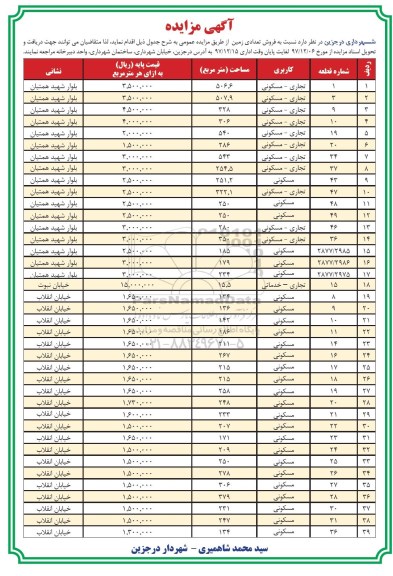 آگهی مزایده
شهرداری درجزین در نظر دارد نسبت به فروش تعدادی زمین از طریق مزایده عمومی به شرح جدول ذیل اقدام نماید، لذا متقاضیان می توانند جهت دریافت و
تحویل اسناد مزایده از مورخ ۹۷/۱۲/۰۶ لغایت پایان وقت اداری ۹۷/۱۲/۱۵ به آدرس درجزین، خیابان شهرداری، ساختمان شهرداری، واحد دبیرخانه مراجعه نمایند.
ردیف شماره قطعه کاربری مساحت (متر مربع) قیمت پایه (ریال) به ازای هر مترمربع نشانی
۱ ۱ تجاری - مسکونی ۵۰۶,۶ ۳,۵۰۰,۰۰۰ بلوار شهید همتیان
۲ ۳ تجاری - مسکونی ۵۰۷,۹ ۳,۵۰۰,۰۰۰ بلوار شهید همتیان
۳ ۹ تجاری - مسکونی ۳۲۸ ۴,۵۰۰,۰۰۰ بلوار شهید همتیان
۴ ۱۰ تجاری - مسکونی ۳۰۶ ۴,۰۰۰,۰۰۰ بلوار شهید همتیان
۵ ۱۹ تجاری - مسکونی ۵۴۰ ۲,۰۰۰,۰۰۰ بلوار شهید همتیان
۶ ۲۰ تجاری - مسکونی ۲۸۶ ۱,۵۰۰,۰۰۰ بلوار شهید همتیان
۷ ۲۴ تجاری - مسکونی ۵۴۳ ۳,۰۰۰,۰۰۰ بلوار شهید همتیان
۸ ۳۷ تجاری - مسکونی ۲۵۴,۵ ۳,۰۰۰,۰۰۰ بلوار شهید همتیان
۹ ۴۳ مسکونی ۲۵۱,۲ ۲,۵۰۰,۰۰۰ بلوار شهید همتیان
۱۰ ۴۷ تجاری - مسکونی ۳۲۲,۱ ۲,۵۰۰,۰۰۰ بلوار شهید همتیان
۱۱ ۴۸ مسکونی ۲۵۰ ۲,۵۰۰,۰۰۰ بلوار شهید همتیان
۱۲ ۴۹ مسکونی ۲۵۰ ۲,۵۰۰,۰۰۰ بلوار شهید همتیان
۱۳ ۴۶ تجاری - مسکونی ۳,۰۰۰,۰۰۰ بلوار شهید همتیان
۱۴ ۳۶ تجاری - مسکونی ۳,۰۰۰,۰۰۰ بلوار شهید همتیان
۱۵ ۲۸۷۷/۲۹۸۵ مسکونی ۱۸۵ ۲,۵۰۰,۰۰۰ بلوار شهید همتیان
۱۶ ۲۸۷۷/۲۹۸۶ مسکونی ۱۷۹ ۳,۰۰۰,۰۰۰ بلوار شهید همتیان
۱۷ ۲۸۷۷/۲۹۷۵ مسکونی ۲۳۴ ۳,۰۰۰,۰۰۰ بلوار شهید همتیان
۱۸ ۱۵ تجاری - خدماتی ۱۵,۵ ۱۵,۰۰۰,۰۰۰ خیابان نبوت
۱۹ ۸ مسکونی ۱,۶۵۰,۰۰۰ خیابان انقلاب
۲۰ ۹ مسکونی ۱۳۶ ۱,۶۵۰,۰۰۰ خیابان انقلاب
۲۱ ۱۰ مسکونی ۱,۶۵۰,۰۰۰ خیابان انقلاب
۲۲ ۱۱ مسکونی ۱۸۶ ۱,۶۵۰,۰۰۰ خیابان انقلاب
۲۳ ۱۴ مسکونی ۲۱۱ ۱,۶۵۰,۰۰۰ خیابان انقلاب
۲۴ ۱۶ مسکونی ۲۶۷ ۱,۶۵۰,۰۰۰ خیابان انقلاب
۲۵ ۱۷ مسکونی ۲۱۵ ۱,۶۵۰,۰۰۰ خیابان انقلاب
۲۶ ۱۸ مسکونی ۲۱۵ ۱,۶۵۰,۰۰۰ خیابان انقلاب
۲۷ ۱۹ مسکونی ۲۵۸ ۱,۶۵۰,۰۰۰ خیابان انقلاب
۲۸ ۲۰ مسکونی ۲۴۸ ۱,۷۳۰,۰۰۰ خیابان انقلاب
۲۹ ۲۱ مسکونی ۲۳۳ ۱,۶۰۰,۰۰۰ خیابان انقلاب
۳۰ ۲۲ مسکونی ۲۰۷ ۱,۵۰۰,۰۰۰ خیابان انقلاب
۳۱ ۲۳ مسکونی ۱۷۱ ۱,۶۵۰,۰۰۰ خیابان انقلاب
۳۲ ۲۴ مسکونی ۲۰۹ ۱,۵۰۰,۰۰۰ خیابان انقلاب
۳۳ ۲۵ مسکونی ۲۵۰ ۱,۵۰۰,۰۰۰ خیابان انقلاب
۳۴ ۲۶ مسکونی ۲۷۸ ۱,۵۰۰,۰۰۰ خیابان انقلاب
۳۵ ۲۷ مسکونی ۳۰۶ ۱,۵۰۰,۰۰۰ خیابان انقلاب
۳۶ ۲۸ مسکونی ۳۷۹ ۱,۵۰۰,۰۰۰ خیابان انقلاب
۳۷ ۳۰ مسکونی ۲۳۱ ۱,۵۰۰,۰۰۰ خیابان انقلاب
۳۸ ۳۱ مسکونی ۲۴۷ ۱,۵۰۰,۰۰۰ خیابان انقلاب
۳۹ ۳۶ مسکونی ۱۳۴ ۱,۳۰۰,۰۰۰ خیابان انقلاب
سید محمد شاهمیری - شهردار درجزین